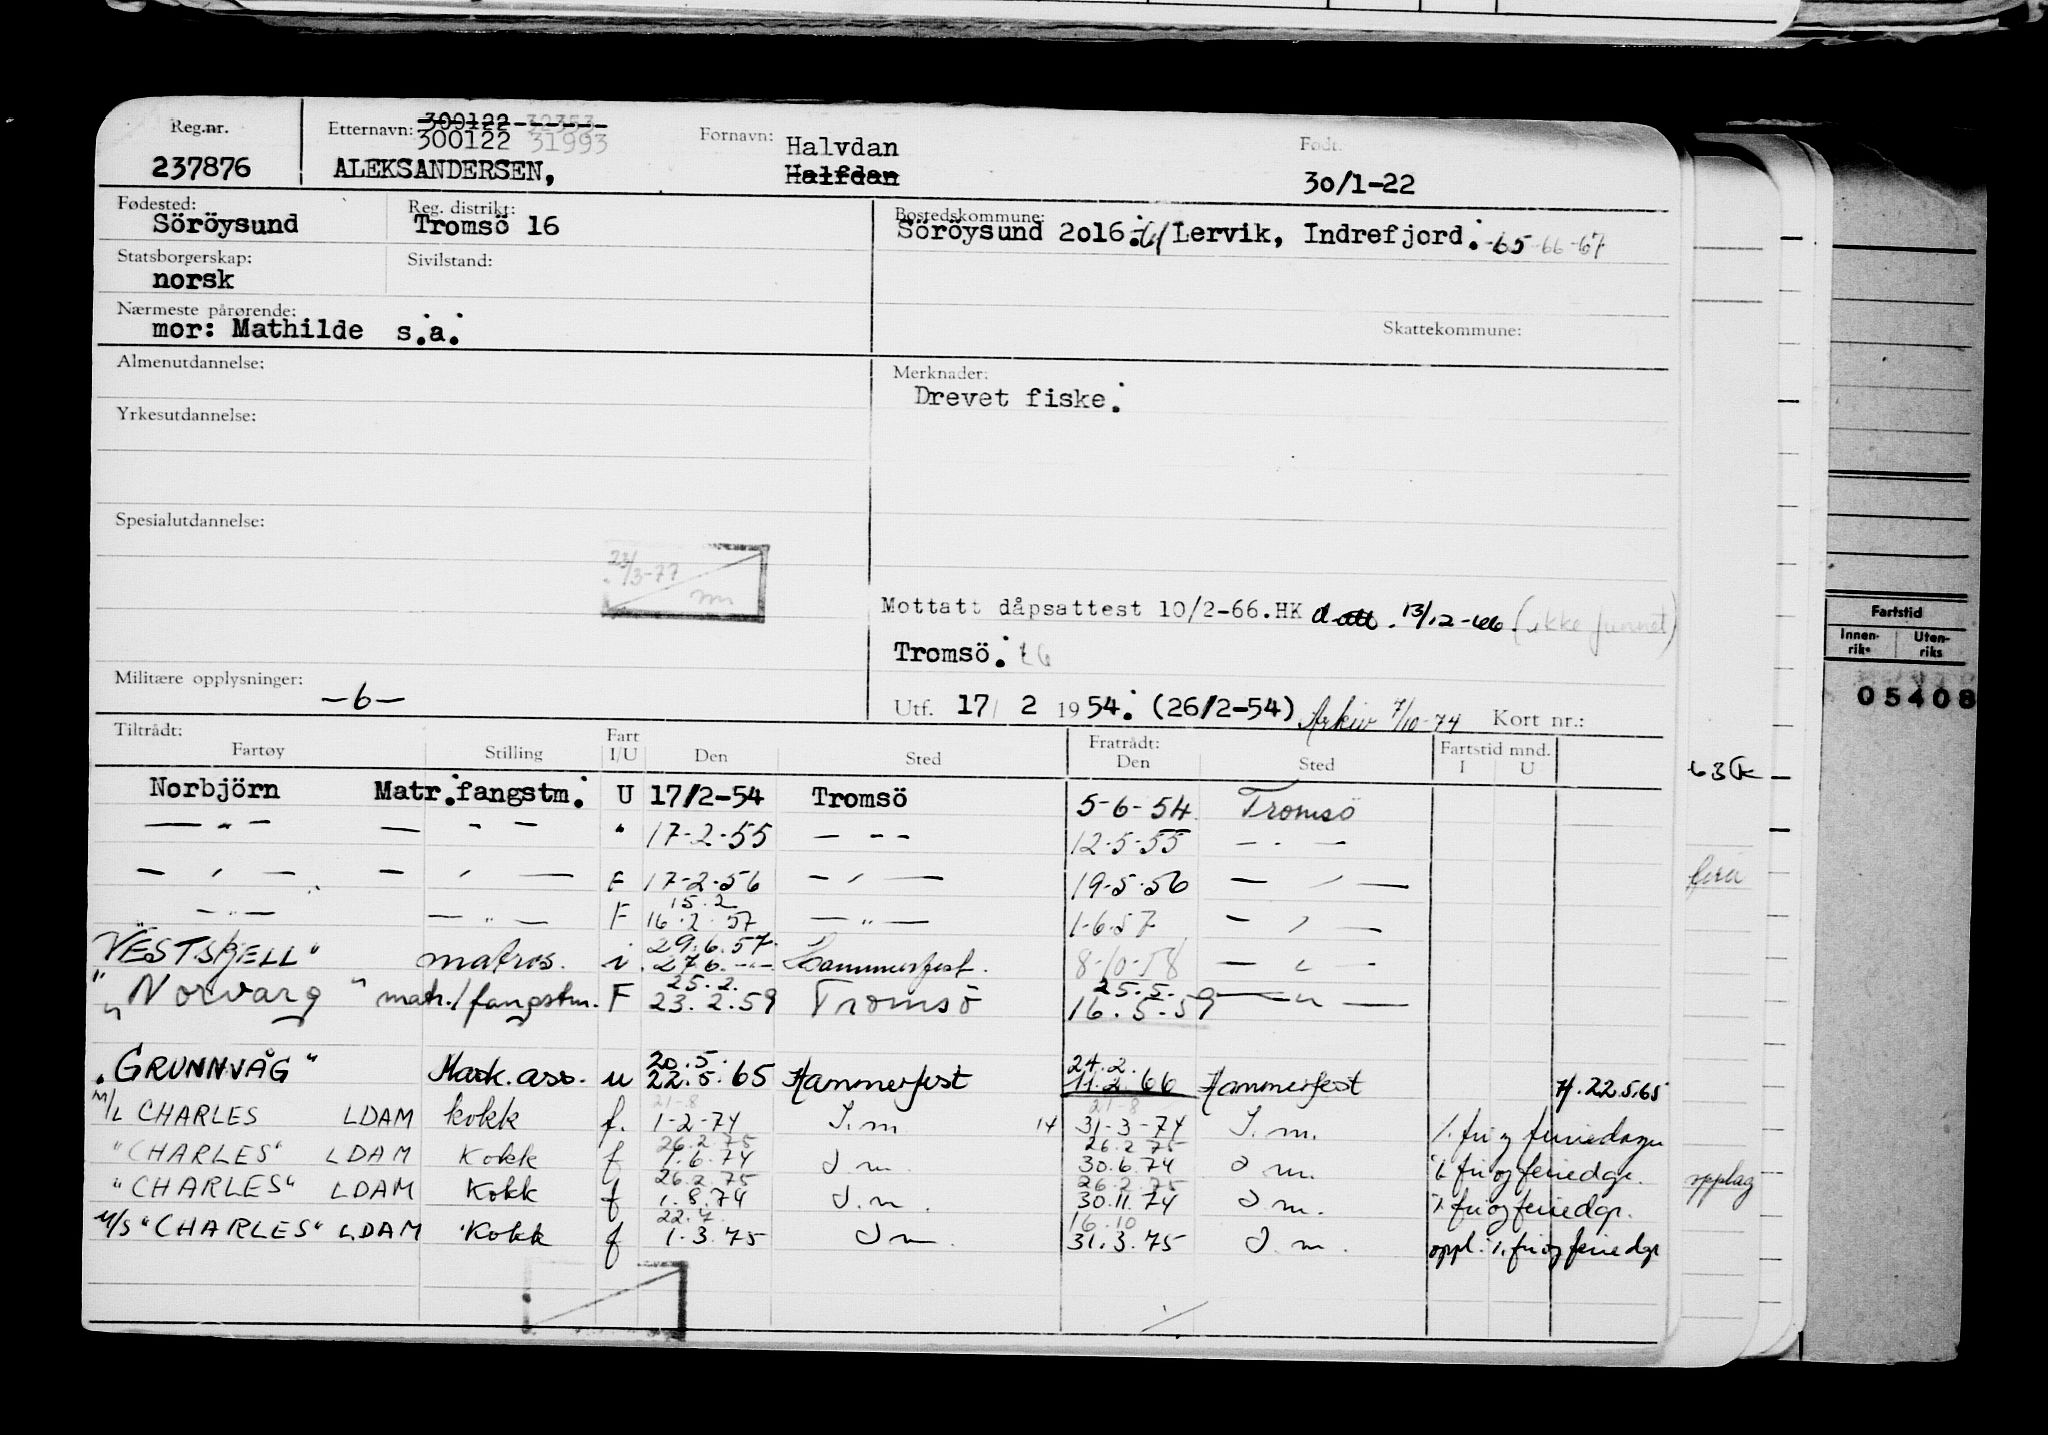 Reg.nr. Etternavn: 300122 32353 Fornavn: Født:
300122 31993 Halvdan
237876 ALEKSANDERSEN, Halfdan 30/1-22
Fødested: Reg. distrikt: Bostedskommune:
Söröysund Tromsö 16 Söröysund 2016. Lervik, Indrefjord. -65-66-67
Statsborgerskap: Sivilstand:
norsk
Nærmeste pårørende:
mor: Mathilde s.a. Skattekommune:
Almenutdannelse: Merknader:
Drevet fiske.
Yrkesutdannelse:
Spesialutdannelse:
23/3-77
Mottatt dåpsattest 10/2-66.HK d.att. 13/12-66 (ikke funnet)
Tromsö.
Militære opplysninger: -6-
Utf. 17/ 2 1954. (26/2-54) Arkiv 7/10-74 Kort nr.:
Tiltrådt: Fart Fratrådt: Fartstid mnd.
Fartøy Stilling I/U Den Sted Den Sted I U
Norbjörn Matr.fangstm. U 17/2-54 Tromsö 5-6-54 Tromsö
— " — — " — " 17-2-55 — " — 12-5-55 — " —
— " — — " — F 17-2-56 — " — 19-5-56 — " —
15.2
— " — — " — F 16.2.57 — " — 1-6-57 — " —
29.6.57
"VESTSKJELL" matros. i 27.6.-"- Hammerfest. 8-10-58 — " —
25.2. 25.5.
"Norvarg" matr./fangstm. F 23.2.59 Tromsö 16.5.59 — " —
20.5. 24.2.
"GRUNNVÅG" Mask.ass. u 22.5.65 Hammerfest 11.2.66 Hammerfest H.22.5.65
21-8 21-8
M/L CHARLES LDAM kokk f. 1-2-74 I.m 14 31-3-74 I.m. /. fri og feriedager
26.2.75 26.2.75
"CHARLES" LDAM Kokk f 1.6.74 I m. 30.6.74 I m. /. fri og feriedgr.
26.2.75 26.2.75
"CHARLES" LDAM Kokk f 1.8.74 I.m. 30.11.74 I m. /. fri og feriedgr.
22.7 16.10
M/S "CHARLES" LDAM Kokk f 1.3.75 I m. 31.3.75 I.m. oppl. /. fri og feriedgr
Fartstid
Innen-riks Uten-riks
05408
opplag